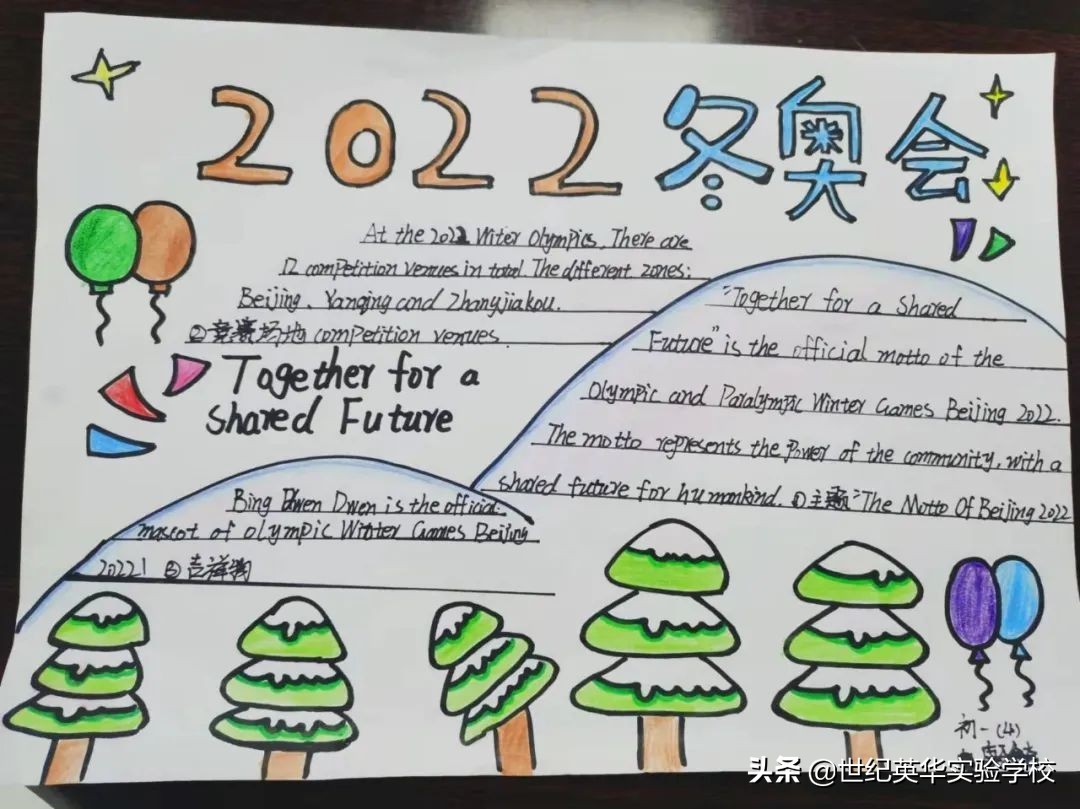 2022 冬奥会
At the 2022 Witer Olympics, There are
12 competition venues in total. The different zones:
Beijing、Yanqing and Zhangjiakou.
②竞赛场地 competition venues.
Together for a
shared Future
"Together for a Shared
Future" is the official motto of the
Olympic and Paralympic Winter Games Beijing 2022.
The motto represents the power of the community, with a
shared future for humankind. ①主题 "The Motto Of Beijing 2022
Bing Dwen Dwen is the official
mascot of Olympic Winter Games Beijing
2022! ③吉祥物
初一 (4)
头条 @世纪英华实验学校